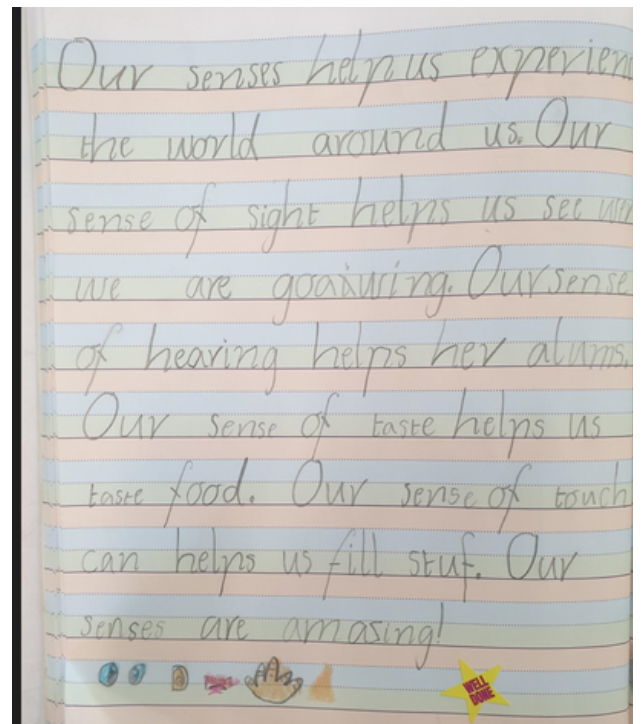 Our senses help us experien
the world around us. Our
sense of sight helps us see wer
we are goaiuring. Our sense
of hearing helps her alums.
Our sense of taste helps us
taste food. Our sense of touch
can helps us fill stuf. Our
senses are amasing!
WELL
DONE